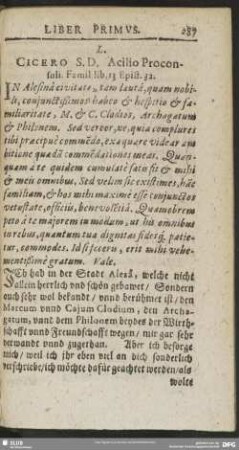 LIBER PRIMVS. 287
L.
CICERO S.D. Acilio Procon-
suli. Famil lib. 13 Epist. 32.
IN Alesina civitate, tam lauta, quam nobi-
li, conjunctissimos habeo & hospitio & fa-
miliaritate, M. & C. Clodios, Archagatum
& Philonem. Sed vereor, ne, quia complures
tibi praecipuè commēdo, exaequare videar am
bitione quadā commēdationes meas. Quan-
quam à te quidem cumulatè satis fit & mihi
& meis omnibus. Sed velim sic existimes, hāc
familiam, & hos mihi maximè esse conjunctos
vetustate, officiis, benevolētiâ. Quamobrem
peto à te majorem in modum, ut his omnibus
in rebus, quantum tua dignitas fidesq́; patie-
tur, commodes. Id si feceris, erit mihi vehe-
mentissimè gratum. Vale.
ICh hab in der Stadt Alesâ, welche nicht
allein herrlich vnd schön gebawet / Sondern
auch sehr wol bekandt / vnnd berühmet ist / den
Marcum vnnd Cajum Clodium, den Archa-
gatum, vnnd dem Philonem beydes der Wirth-
schafft vnnd Freundschafft wegen / mir gar sehr
verwandt vnnd zugethan. Aber ich besorge
mich / weil ich ihr eben viel an dich sonderlich
verschriebe / ich möchte dafür geachtet werden / als
wolte